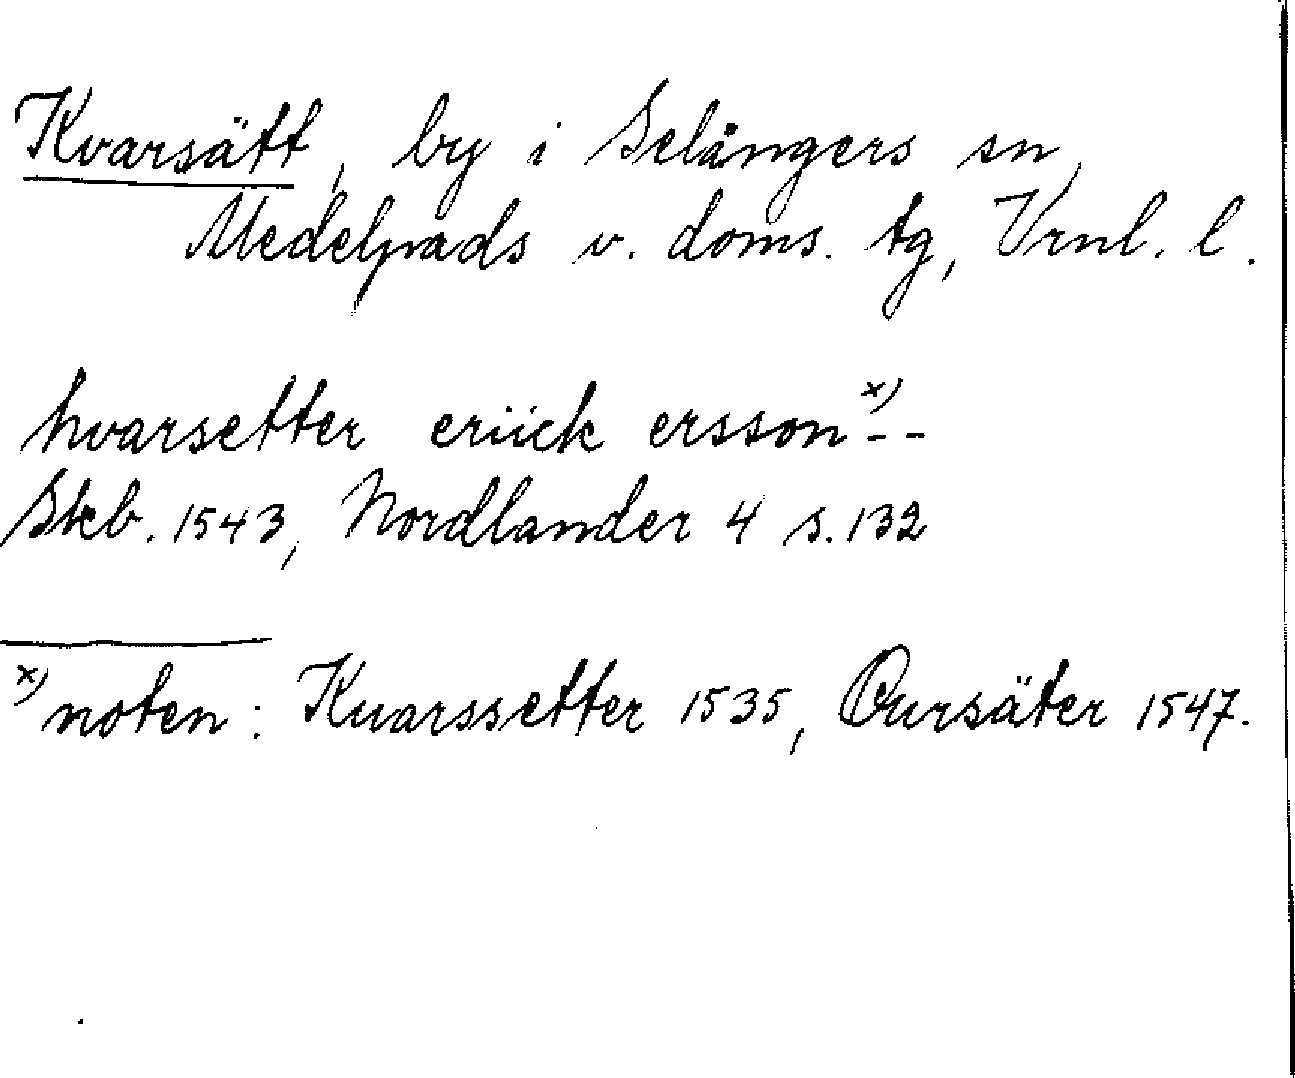 Kvarsätt, by i Selångers sn,
Medelpads v. doms. tg, Vrnl. l.
hvarsetter eriick ersson x) - -
Skb. 1543, Nordlander 4 s. 132
x) noten: Kuarssetter 1535, Qursäter 1547.